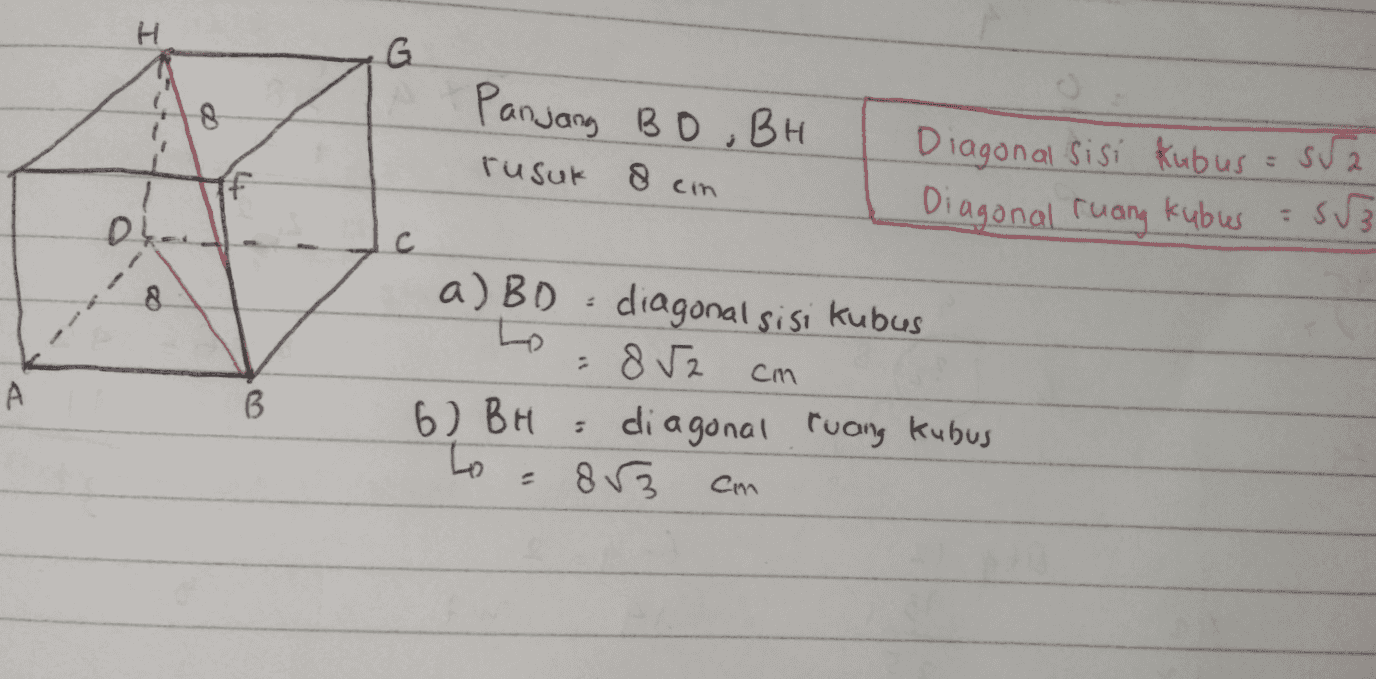 H
G
8
F
D
C
8
A
B
Panjang BD, BH
rusuk 8 cm
Diagonal sisi kubus = s√2
Diagonal ruang kubus = s√3
a) BD = diagonal sisi kubus
= 8√2 cm
b) BH = diagonal ruang kubus
= 8√3 cm